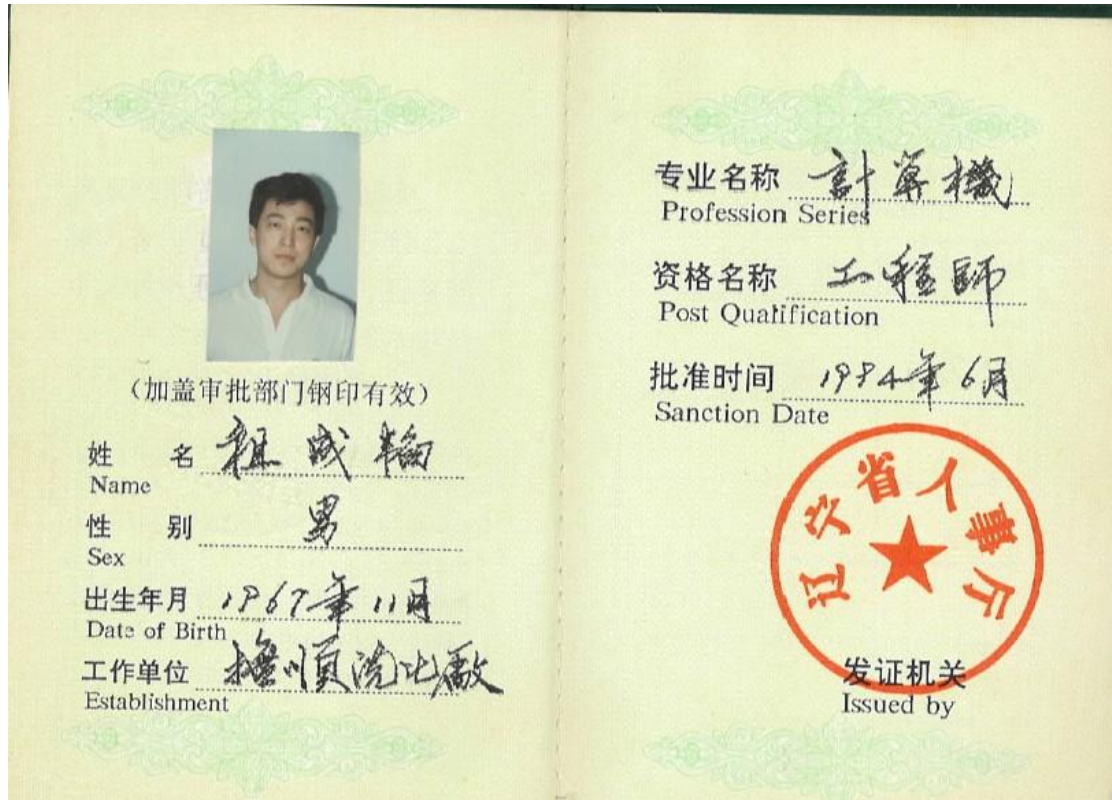 (加盖审批部门钢印有效)
姓 名 成
Name
性 别 男
Sex
出生年月 1967年11月
Date of Birth
工作单位 撫順洗化廠
Establishment
专业名称 計算機
Profession Series
资格名称 工程師
Post Qualification
批准时间 年6月
Sanction Date
辽宁省人事厅
发证机关
Issued by